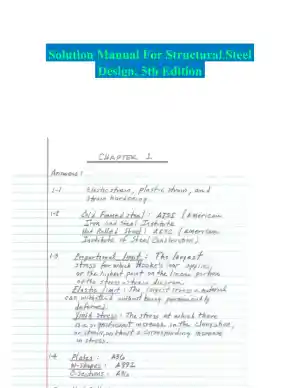 Solution Manual For Structural Steel
Design, 5th Edition
CHAPTER 1
Answers:
1-1 Elastic strain, plastic strain, and
strain hardening.
1-2 Cold Formed steel: AISI (American
Iron and Steel Institute
Hot Rolled Steel: AISC (American
Institute of Steel Construction)
1-3 Proportional limit: The largest
stress for which Hooke's law applies,
or the highest point on the linear portion
of the stress-strain diagram.
Elastic limit: The largest stress a material
can withstand without being permanently
deformed.
Yield stress: The stress at which there
is a significant increase in the elongation,
or strain, without a corresponding increase
in stress.
1-4 Plates: A36
W-shapes: A992
C-sections: A36